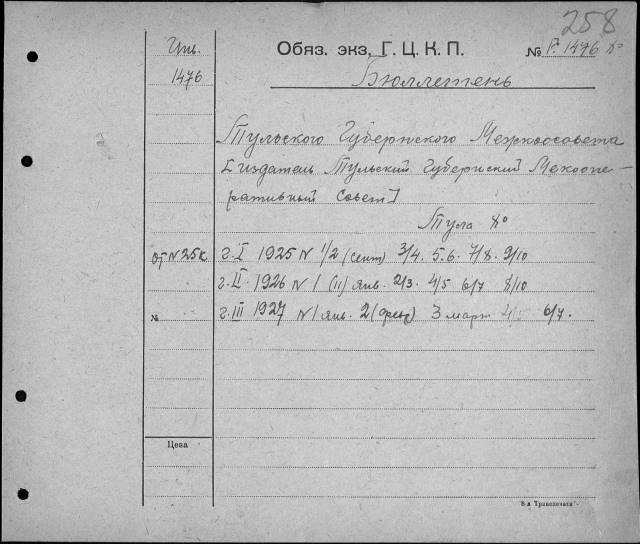 258
Инв. Обяз. экз. Г. Ц. К. П. № Р. 1476 8°
1476 Бюллетень
Тульского Губернского Межкоосовета
[издатель Тульский Губернский Межкоопе-
ративный Совет]
Тула 8°
от N 25 к. г. I 1925 N 1/2 (сент) 3/4. 5.6. 7/8. 9/10
г. II. 1926 N 1 (11) янв. 2/3. 4/5 6/7 8/10
№ г. III 1927 N 1 янв. 2 (февр) 3 март 4/5 6/7.
Цена
8-я Транспечати